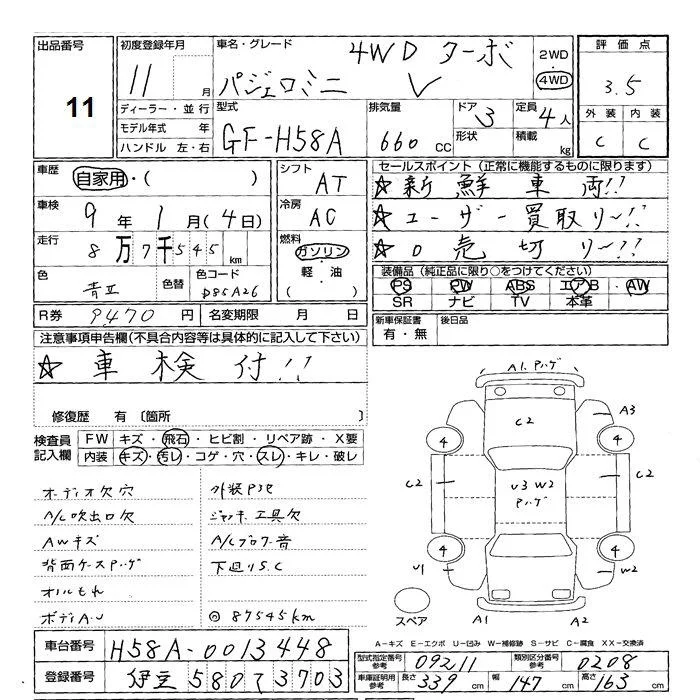 出品番号
11
初度登録年月
11 月
ディーラー・並行
モデル年式 年
ハンドル 左・右
車名・グレード
4WD ターボ
パジェロミニ V
2WD
4WD
評価点
3.5
外装 内装
C C
型式
GF-H58A
排気量
660 CC
ドア 3
形状
定員 4人
積載 kg
車歴
自家用・( )
車検
9年 1月(4日)
走行
8万7千545 km
色
色替
色コード
シフト
AT
冷房
AC
燃料
ガソリン
軽・油
( )
セールスポイント(正常に機能するものに限ります)
☆新鮮車両!!
☆ユーザー買取り〜!!
☆0売切り〜!!
装備品(純正品に限り○をつけてください)
PS PW ABS エアB・AW
SR ナビ TV 本革
R券 9470円
名変期限 月 日
新車保証書
有・無
後日品
注意事項申告欄(不具合内容等は具体的に記入して下さい)
☆車検付!!
修復歴 有〔箇所 〕
検査員
記入欄
FW キズ・飛石・ヒビ割・リペア跡・X要
内装 キズ・汚レ・コゲ・穴・スレ・キレ・破レ
オーディオ欠穴
A/C吹出口欠
AWキズ
背面ケースPハゲ
ボディA.U
外装P劣
ジャッキ工具欠
A/Cブロワ音
下廻りS.C
◎87545km
A1.Pハゲ
A3
C2
4
4
C2
C2
V3 W2
Pハゲ
4
4
U1
W2
A1
A2
スペア
A-キズ E-エクボ U-凹み W-補修跡 S-サビ C-腐食 XX-交換済
車台番号
H58A-0013448
登録番号
伊豆 580 7 3703
型式指定番号
参考
09211
類別区分番号
参考
0208
車庫証明用
参考
長さ 339 cm
幅 147 cm
高さ 163 cm